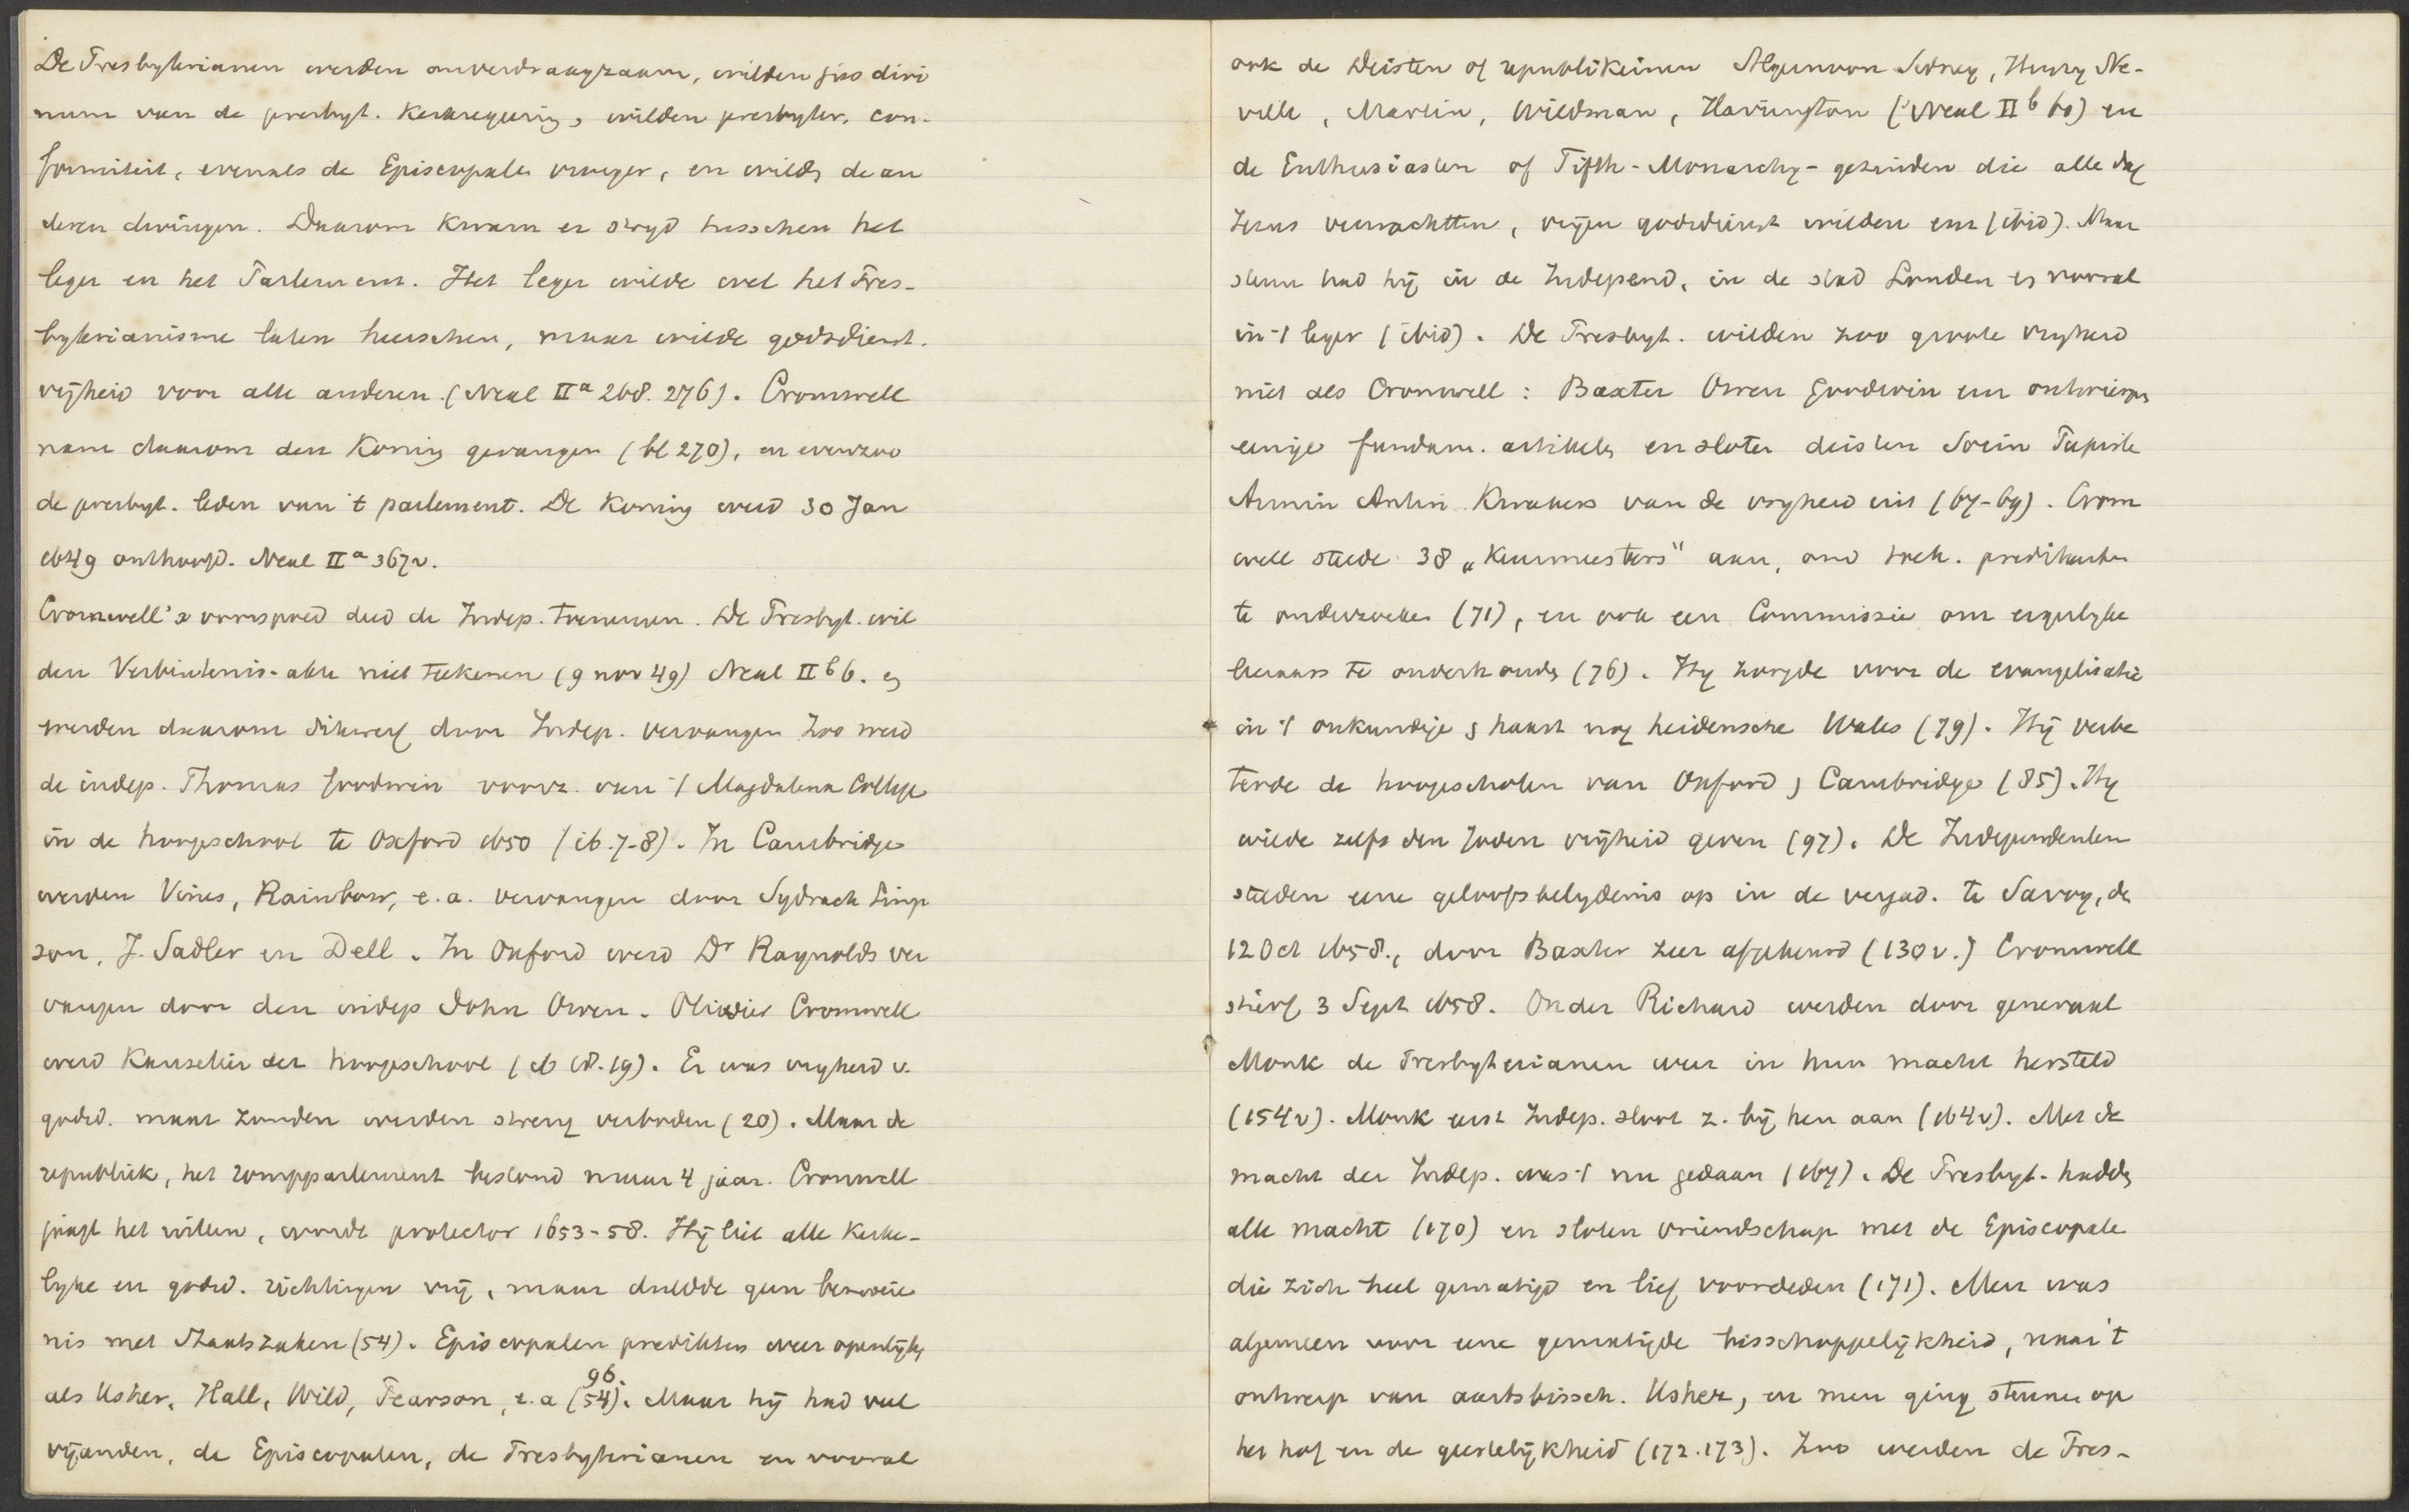 De Presbyterianen werden onverdraagzaam, wilden jus divi
num van de presbyt. Kerkregering, wilden presbyter. con-
formiteit, evenals de Episcopale vroeger, en wilde de an
deren dwingen. Daarom kwam er stryd tusschen het
leger en het Parlement. Het leger wilde wel het Pres-
byterianisme laten heerschen, maar wilde godsdienst.
vrijheid voor alle anderen. (Neal IIa 268. 276). Cromwell
nam daarom den Koning gevangen (bl 270), en evenzoo
de presbyt. leden van 't parlement. De Koning werd 30 Jan
1649 onthoofd. Neal IIa 367v.
Cromwell's voorspoed deed de Indep. toenemen. De Presbyt. wil
den Verbintenis-akte niet teekenen (9 nov 49) Neal IIb 6. en
werden daarom dikwerf door Indep. vervangen Zoo werd
de indep. Thomas Goodwin voorz. van 't Magdalena College
in de hoogeschool te Oxford 1650 (ib. 7-8). In Cambridge
werden Vines, Rainbow, e.a. vervangen door Sydrach Simp
son, J. Sadler en Dell. In Oxford werd Dr Raynolds ver
vangen door den indep John Owen. Olivier Cromwell
werd Kanselier der hoogeschool (ib 18. 19). Er was vryheid v.
godsd. maar zonden werden streng verboden (20). Maar de
republiek, het rompparlement bestond maar 4 jaar. Cromwell
jaagt het uiteen, wordt protector 1653-58. Hij liet alle Kerke-
lyke en godsd. richtingen vrij, maar duldde geen bemoeie
nis met Staatszaken (54). Episcopalen predikten weer openlijk
als Usher, Hall, Wild, Pearson, e.a (54). 96. Maar hij had veel
vijanden, de Episcopalen, de Presbyterianen en vooral
ook de Deisten of republikeinen Algernoon Sidney, Henry Ne-
ville, Martin, Wildman, Harrington (Neal IIb 60) en
de Enthusiasten of Fifth-Monarchy-gezinden die alle dag
Jezus verwachtten, vrijen godsdienst wilden enz (ibid). Maar
steun had hij in de Independ. in de stad Londen en vooral
in 't leger (ibid). De Presbyt. wilden zoo groote vryheid
niet als Cromwell: Baxter Owen Goodwin enz ontwierpen
eenige fundam. artikels en sloten deisten Socin Papiste
Armin Antin. Kwakers van de vryheid uit (67-69). Crom
well stelde 38 „Keurmeesters" aan, om predikanten
te onderzoeken (71), en ook een Commissie om ergerlyke
leeraars te onderhouden (76). Hy zorgde voor de evangelisatie
in 't onkundige en haast nog heidensche Wales (79). Hij verbe
terde de hoogescholen van Oxford en Cambridge (85). Hy
wilde zelfs den Joden vrijheid geven (97). De Independenten
stelden eene geloofsbelydenis op in de vergad. te Savoy, de
12 Oct 1658., door Baxter zeer afgekeurd (130v.) Cromwell
stierf 3 Sept 1658. Onder Richard werden door generaal
Monk de Presbyterianen weer in hun macht hersteld
(154v). Monk eerst Indep. sloot z. bij hen aan (164v). Met de
macht der Indep. was 't nu gedaan (167). De Presbyt. hadden
alle macht (170) en sloten vriendschap met de Episcopale
die zich heel gematigd en lief voordeden (171). Men was
algemeen voor eene gematigde bisschoppelijkheid, naar 't
ontwerp van aartsbissch. Usher, en men ging steunen op
het hof en de geestelijkheid (172. 173). Zoo werden de Pres-